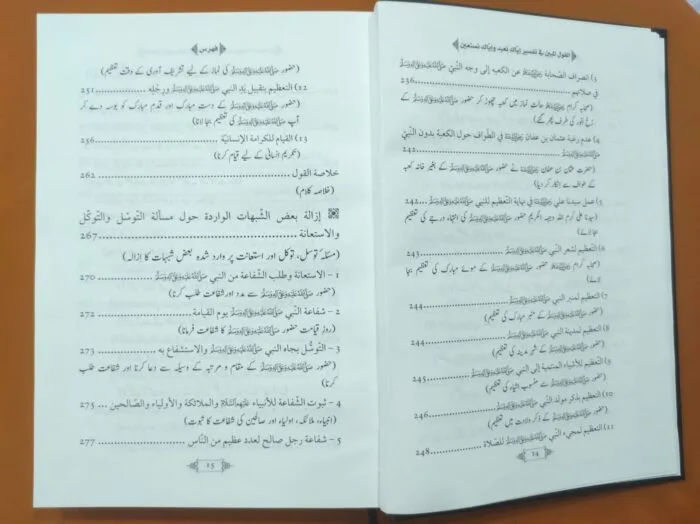 القول المبين في تفسير إياك نعبد وإياك نستعين
3) انصراف الصحابة ﷺ عن الكعبة إلى وجه النّبيّ ﷺ
في صلاتهم ........ 236
(صحابہ کرام ﷺ حالتِ نماز میں کعبہ چھوڑ کر حضور ﷺ کے
رُخِ انور کی طرف پھر گئے)
4) عدم رغبة عثمان بن عفان ﷺ في الطواف حول الكعبة بدون النّبيّ
ﷺ ........ 242
(حضرت عثمان بن عفان نے حضور ﷺ کے بغیر خانہ کعبہ
کے طواف سے انکار کر دیا)
5) عمل سيدنا علي في نهاية التعظيم للنّبي ﷺ ...... 242
(سیدنا علی کرم اللہ وجہہ الکریم حضور ﷺ کی انتہاء درجے کی تعظیم
بجا لائے)
6) التعظيم لشعر النّبي ﷺ ........ 243
(صحابہ کرام حضور ﷺ کے موئے مبارک کی تعظیم بجا
لائے)
7) التعظيم لمنبر النبي ﷺ ........ 244
(حضور ﷺ کے منبر مبارک کی تعظیم)
8) التعظيم لمدينة النّبي ﷺ ........ 244
(حضور ﷺ کے شہر مدینہ کی تعظیم)
9) التعظيم للأشياء المنتمية إلى النبي ﷺ ........ 245
(حضور ﷺ سے منسوب اشیاء کی تعظیم)
10) التعظيم بذكر مولد النّبي ﷺ ........ 246
(حضور ﷺ کے ذکر ولادت میں تعظیم)
11) التعظيم لمجيء النّبي ﷺ للصّلاة ........ 248
14
فہرس
(حضور ﷺ کی نماز کے لیے تشریف آوری کے وقت تعظیم)
12) التعظيم بتقبيل يَدِ النبي ﷺ ورِجْلِه ........ 251
(حضور ﷺ کے دستِ مبارک اور قدم مبارک کو بوسہ دے کر
آپ ﷺ کی تعظیم بجا لانا)
13) القيام للكرامة الإنسانيّة ........ 256
(تکریمِ انسانی کے لیے قیام کرنا)
خلاصة القول ........ 262
(خلاصہ کلام)
إزالة بعض الشّبهات الواردة حول مسألة التوسّل والتوكّل
والاستعانة ........ 267
(مسئلہ توسل، توکل اور استعانت پر وارد شدہ بعض شبہات کا ازالہ)
1 - الاستعانة وطلب الشّفاعة من النبي ﷺ ........ 270
(حضور ﷺ سے مدد اور شفاعت طلب کرنا)
2 - شفاعة النّبي ﷺ يوم القيامة ........ 272
(روزِ قیامت حضور ﷺ کا شفاعت فرمانا)
3 - التّوسّل بجاه النبي ﷺ والاستشفاع به ........ 273
(حضور ﷺ کے مقام و مرتبہ کے وسیلہ سے دعا کرنا اور شفاعت طلب
کرنا)
4 - ثبوت الشّفاعة للأنبياء والملائكة والأولياء والصّالحين ... 275
(انبیاء، ملائکہ، اولیاء اور صالحین کی شفاعت کا ثبوت)
5 - شفاعة رجل صالح لعدد عظيم من النّاس ........ 277
15